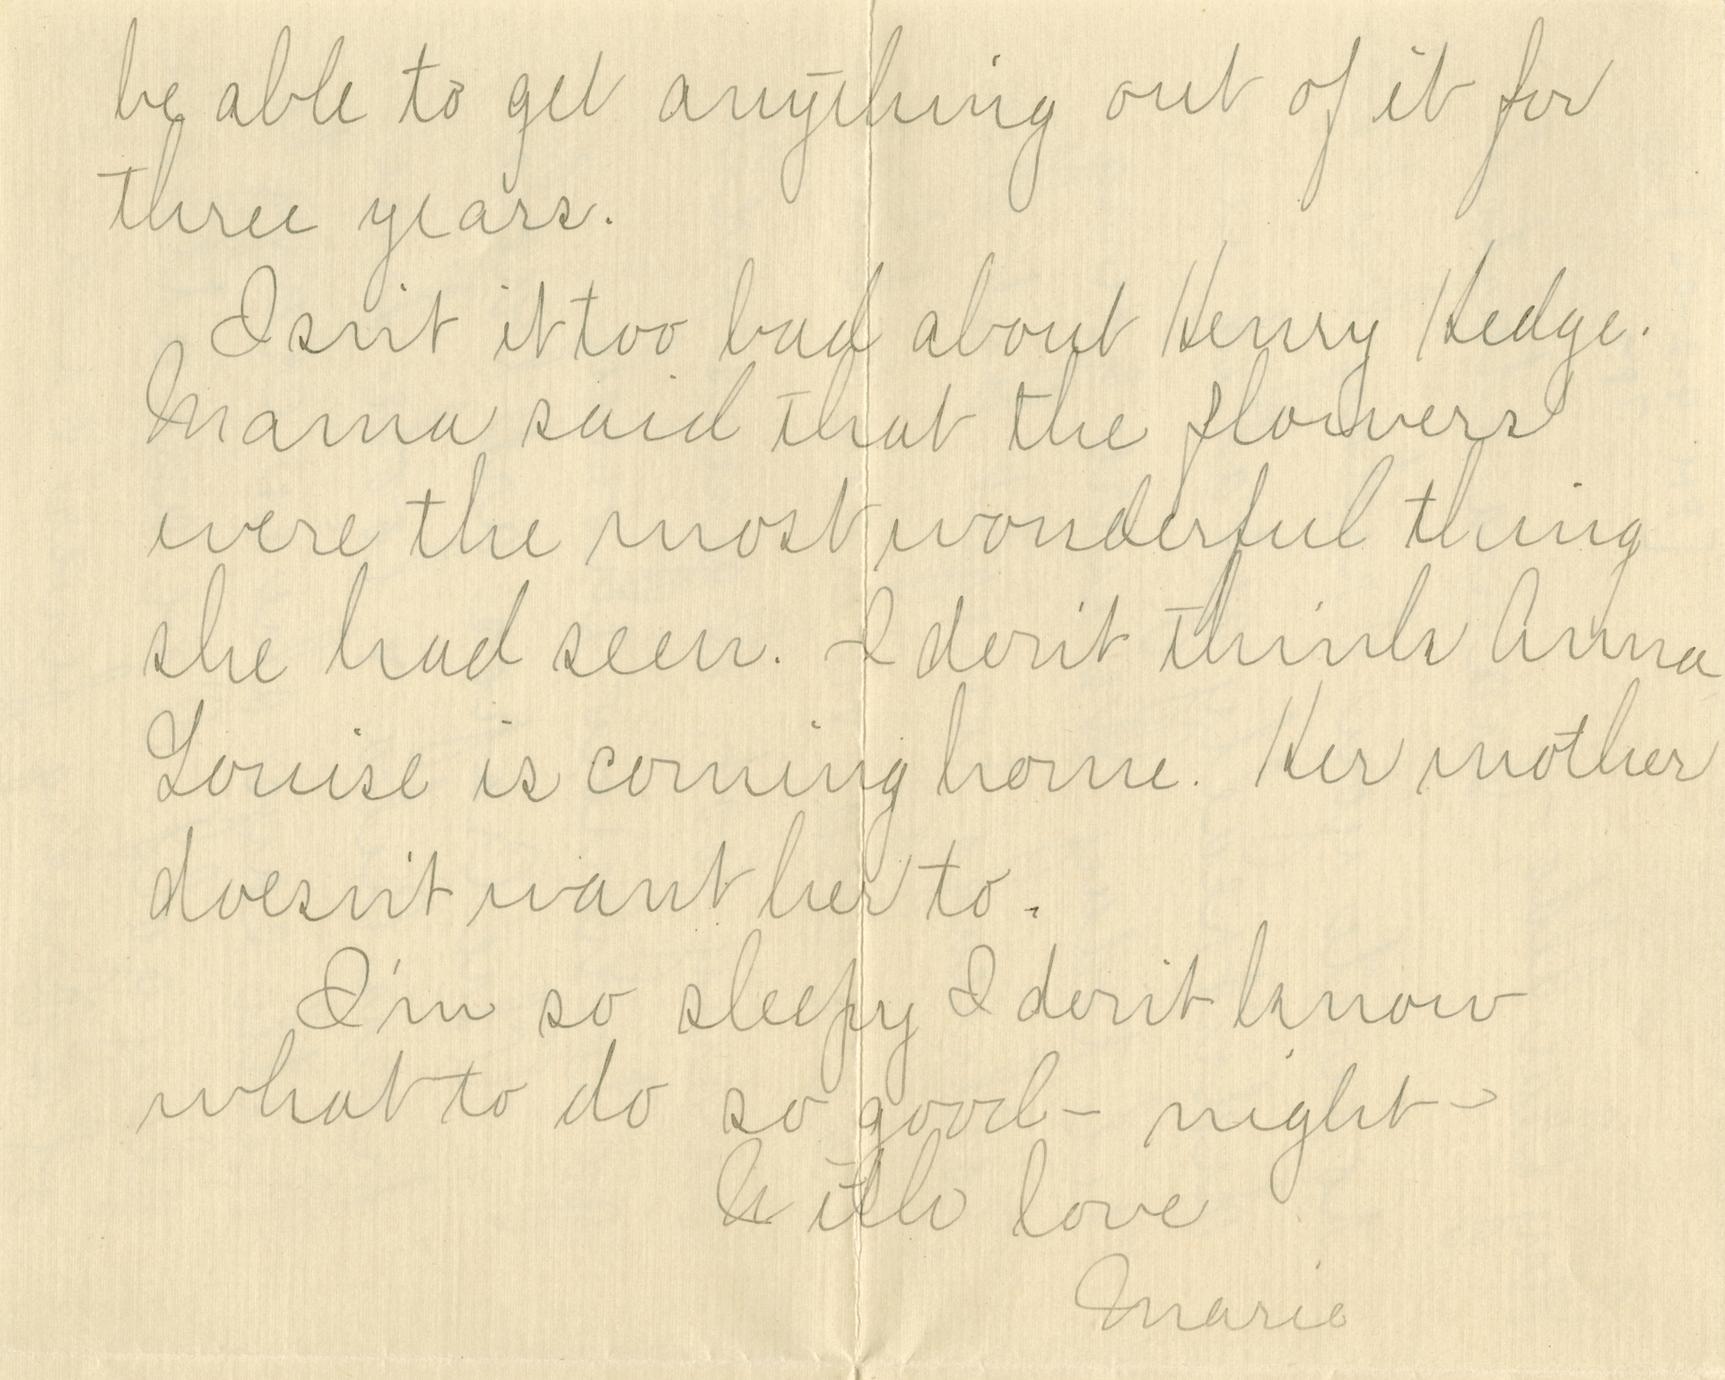 be able to get anything out of it for
three years.
Isn't it too bad about Henry Hedge.
Mama said that the flowers
were the most wonderful thing
she had seen. I don't think Anna
Louise is coming home. Her mother
doesn't want her to.
I'm so sleepy I don't know
what to do so good - night -
With love
Marie